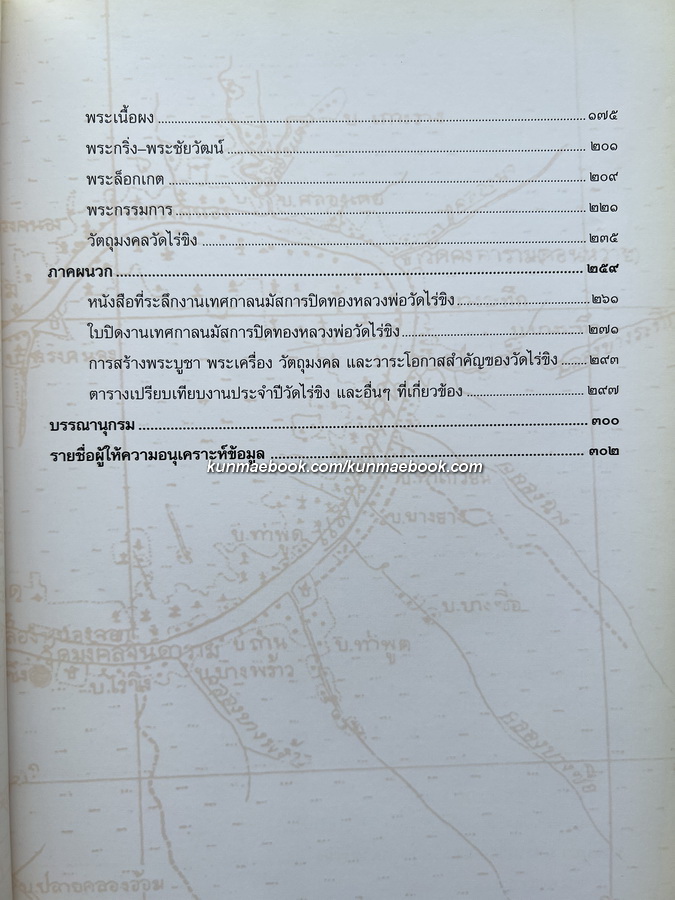 พระเนื้อผง ๑๗๕
พระกริ่ง–พระชัยวัฒน์ ๒๐๑
พระล็อกเกต ๒๐๙
พระกรรมการ ๒๒๑
วัตถุมงคลวัดไร่ขิง ๒๓๕
ภาคผนวก ๒๕๙
หนังสือที่ระลึกงานเทศกาลนมัสการปิดทองหลวงพ่อวัดไร่ขิง ๒๖๑
ใบปิดงานเทศกาลนมัสการปิดทองหลวงพ่อวัดไร่ขิง ๒๗๑
การสร้างพระบูชา พระเครื่อง วัตถุมงคล และวาระโอกาสสำคัญของวัดไร่ขิง ๒๙๓
ตารางเปรียบเทียบงานประจำปีวัดไร่ขิง และอื่นๆ ที่เกี่ยวข้อง ๒๙๗
บรรณานุกรม ๓๐๐
รายชื่อผู้ให้ความอนุเคราะห์ข้อมูล ๓๐๒
kunmaebook.com/kunmaebook.com
บ.บางช้าง
บ.ท่าพูด
บ.บางซื่อ
บ.ท่าพูด
บ.บางพร้าว
บ.ไร่ขิง
คลองบางพร้าว
คลองบางซื่อ
บ.ปลายคลองอ้อม